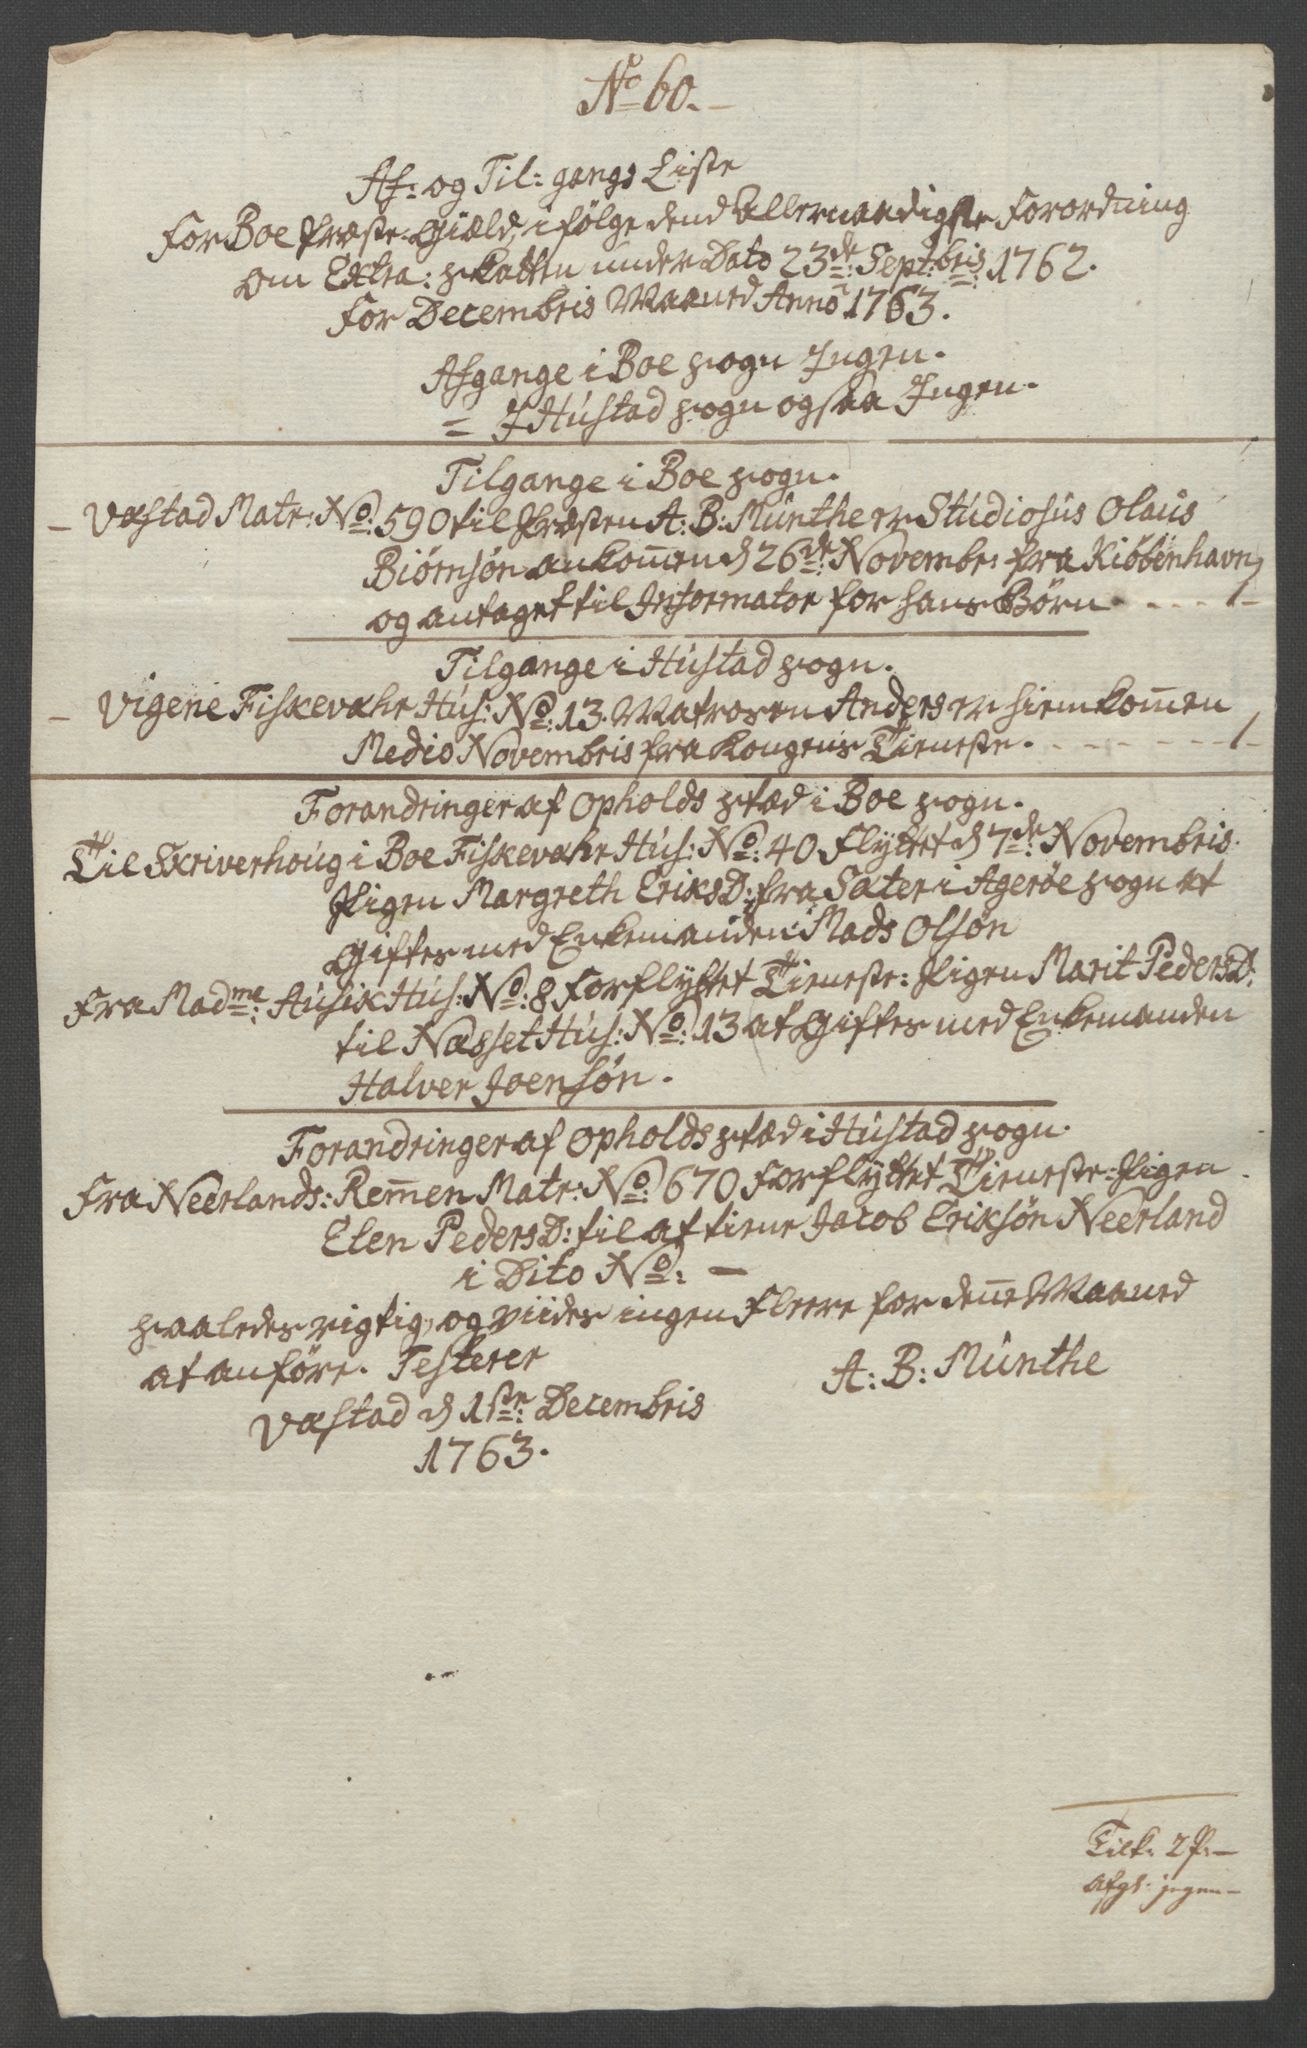 No 60.
Af: og Til: gangs Liste
For Boe Præste-Giæld, i følge dend Allernaadigste Forordning
om Extra: Skatten under Dato 23de: Septbris: 1762.
For Decembris Maaned Anno 1763.
Afgange i Boe Sogn Ingen.
= I Hústad Sogn ogsaa Ingen.
Tilgange i Boe Sogn.
– Væstad Matr: No: 590 til Præsten A: B: Múnthe er Stúdiosús Olaús
Biørnsøn ankomen d 26de: Novembr: fra Kiøbenhavn,
og antaget til Informator for hans Børn. - - - - 1 -
Tilgange i Hústad Sogn.
– Vigene Fiskevæhr Hús: No: 13. Matrosen Anders er hiemkomen
Medio Novembris fra Kongens Tieneste. - - - - - - - 1 -
Forandringer af Opholds Stæd i Boe Sogn.
Til Skriverhoúg i Boe Fiskevæhr Hús: No: 40 Flyttet d 7de: Novembris.
Pigen Margreth EriksD: fra Sæter i Agerøe Sogn at
Giftes med Enkemanden Mads Olsøn
Fra Madme: Húsix Hús: No: 8 Forflyttet Tieneste: Pigen Marit PedersD:
til Næsset Hús: No: 13 at Giftes med Enkemanden
Halver Joensøn.
Forandringer af Opholds Stæd i Hústad Sogn.
Fra Neerlands: Remen Matr: No: 670 Forflyttet Tieneste-Pigen
Elen PedersD: til at tiene Jacob Eriksøn Neerland
i Dito No: –
Saaledes rigtig, og viides ingen Fleere for dene Maaned
at anføre. Testerer
A: B: Múnthe
Væstad d 1ste: Decembris
1763.
Tilk: 2 P: –
Afgl: ingen –